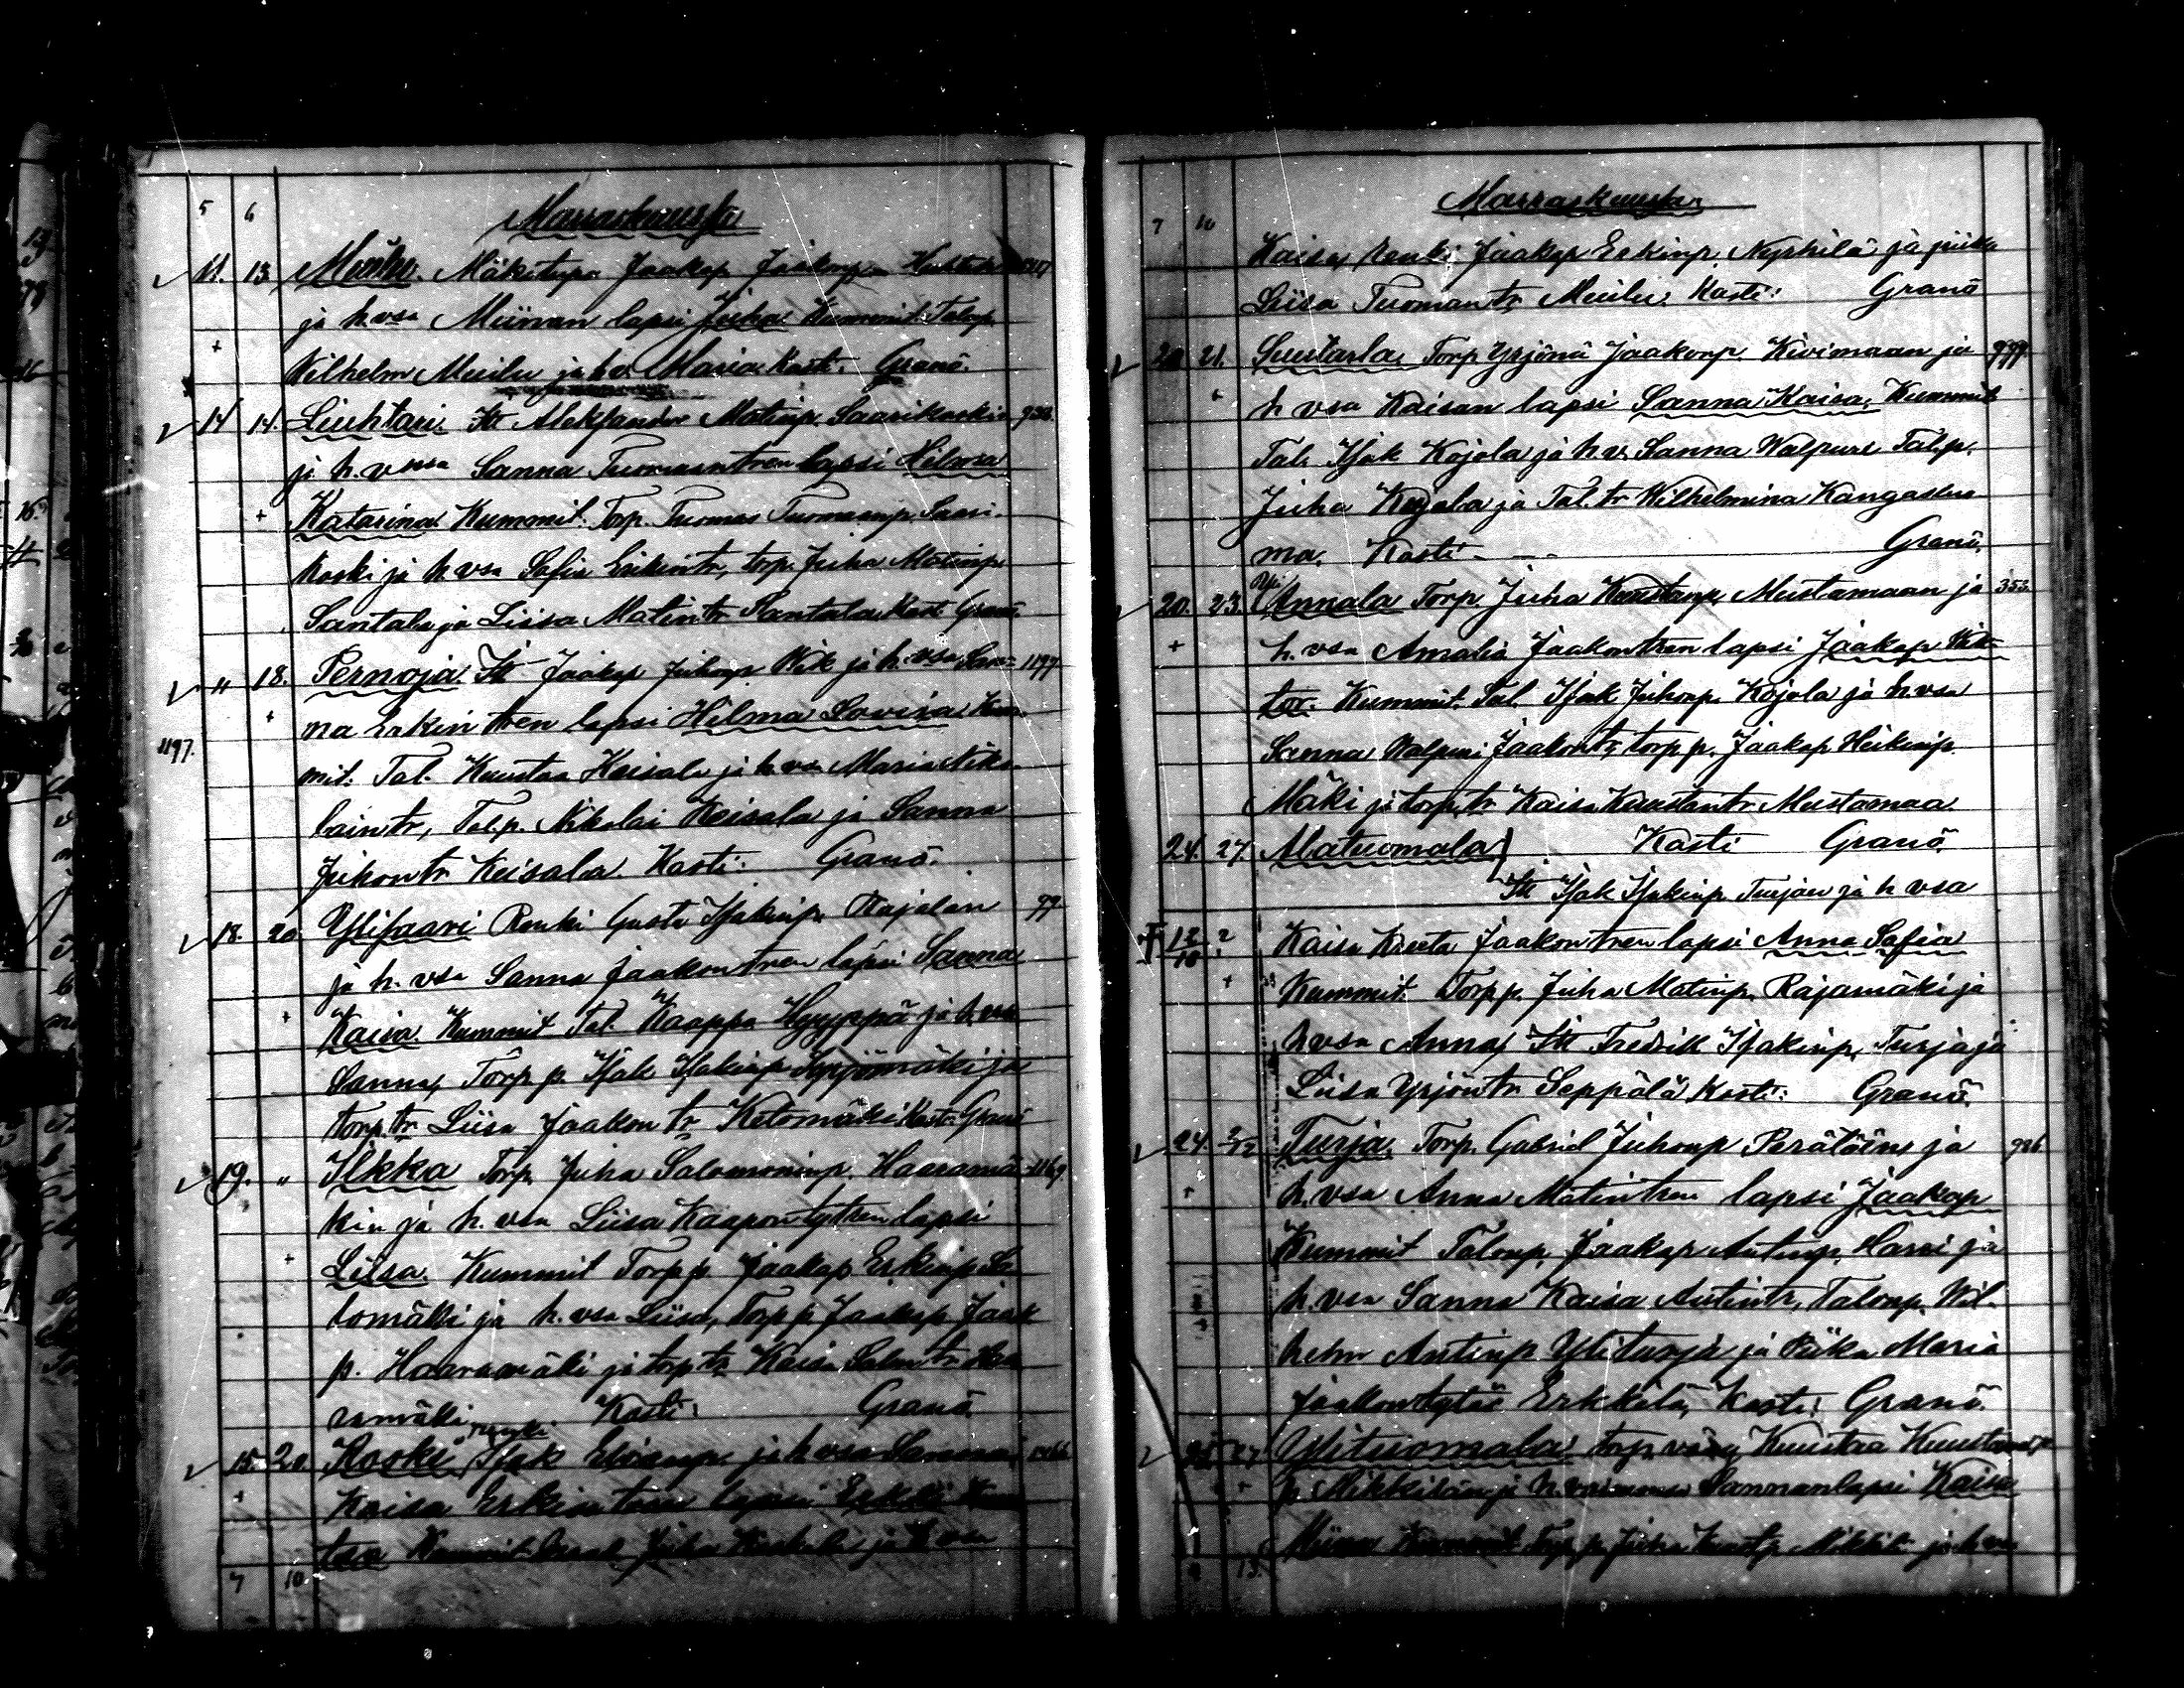 5 6 Marraskuusta
11. 13. Muilu. Mäkitupa Jaakop Jaakonp.
ja h. vsa Miinan lapsi Juha Kummit. Talonp.
Wilhelm Muilu ja h.v. Maria Kasti. Granö.
14 14. Luhtari. Itl Aleksander Matinp. Saarikosken
ja h. vnsa Sanna Tuomaantren lapsi Hilma
Katarina Kummit. Torp. Tuomas Tuomaanp. Saari-
koski ja h. vsa Sofia torp. Juha Matinp.
Santala ja Liisa Matintr. Santala Kast. Granö.
" 18. Pernoja Itl Jaakop Juhonp. Wik ja h. vsa San- 1197
na tren lapsi Hilma Lovisa. Kum-
1197.
mit. Tal. Kuustaa Keisala ja h. vsa Maria Niko-
laintr, Tal.p. Nikolai Keisala ja Sanna
Juhontr Keisala. Kasti: Granö.
18. 20. Ylisaari Renki Gusta Isakinp. Rajalan 99
ja h. vsa Sanna Jaakontren lapsi Sanna
Kaisa. Kummit Tal. Kaappo Hyyppä ja h. vsa
Sanna, Torp p. Isak Isakinp. Syrjämäki ja
torp.tr Liisa Jaakontr Ketomäki Kast. Granö
19. " Ilkka Torp. Juha Salomoninp. Haaramä- 1169
kin ja h. vsa Liisa Kaapontytren lapsi
Liisa. Kummit Torp p. Jaakop Erkinp. Sa
lomäki ja h. vsa Liisa, Torp p. Jaakop Jaak
p. Haaramäki ja torp.tr. Kaisa Salom.tr. Haa
ramäki Kasti: Granö.
15. 20. Koski Renki Isak ja h. vsa Sanna
Kaisa Erkintren lapsi
Kummit Juha ja h. vsa
7 10
7 10 Marraskuusta
Kaisa, Renki Jaakop Erkinp. Nyrhilä ja piika
Liisa Tuomantr. Muilu. Kasti: Granö
20 21. Suutarla. Torp Yrjönä Jaakonp. Kivimaan ja 999
h vsa Kaisan lapsi Sanna Kaisa. Kummit
Tal. Isak Kojola ja h.v. Sanna Walpuri Tal.p.
Juha Kojola ja Tal.tr Wilhelmina Kangaslu
ma. Kasti - Granö.
20. 23. Yli Annala Torp. Juha Kuustanp. Mustamaan ja 353
h. vsa Amalia Jaakontren lapsi Jaakop Wik-
tor. Kummit. Tal. Isak Juhonp. Kojola ja h vsa
Sanna Walpuri Jaakontr, torp p. Jaakop Heikinp.
Mäki ja torp.tr Kaisa Kuustantr Mustamaa
24. 27. Matuomala Kasti Granö.
Itl Isak Isakinp. Turjan ja h vsa
12/10 ? Kaisa Kreeta Jaakontren lapsi Anna Sofia
Kummit. Torp p. Juha Matinp. Rajamäki ja
h vsa Anna, Itl Fredrik Isakinp. Turja ja
Liisa Yrjöntr Seppälä. Kasti: Granö.
24. 2/12 Turja. Torp. Gabriel Juhonp ja 986
h. vsa Anna Matintren lapsi Jaakop
Kummit Talonp. Jaakop Antinp. Harri ja
h. vsa Sanna Kaisa Antintr, Talonp. Wil-
helm Antinp Yliturja ja Piika Maria
Jaakontytär Erkkilä, Kasti: Granö.
27 Ylituomala torp.vävy Kuustaa Kuustaan
p. Mikkilän ja h. vaimonsa Sannan lapsi Kaisa
Miina Kummit Torp p. Juha ja h. vsa
13.